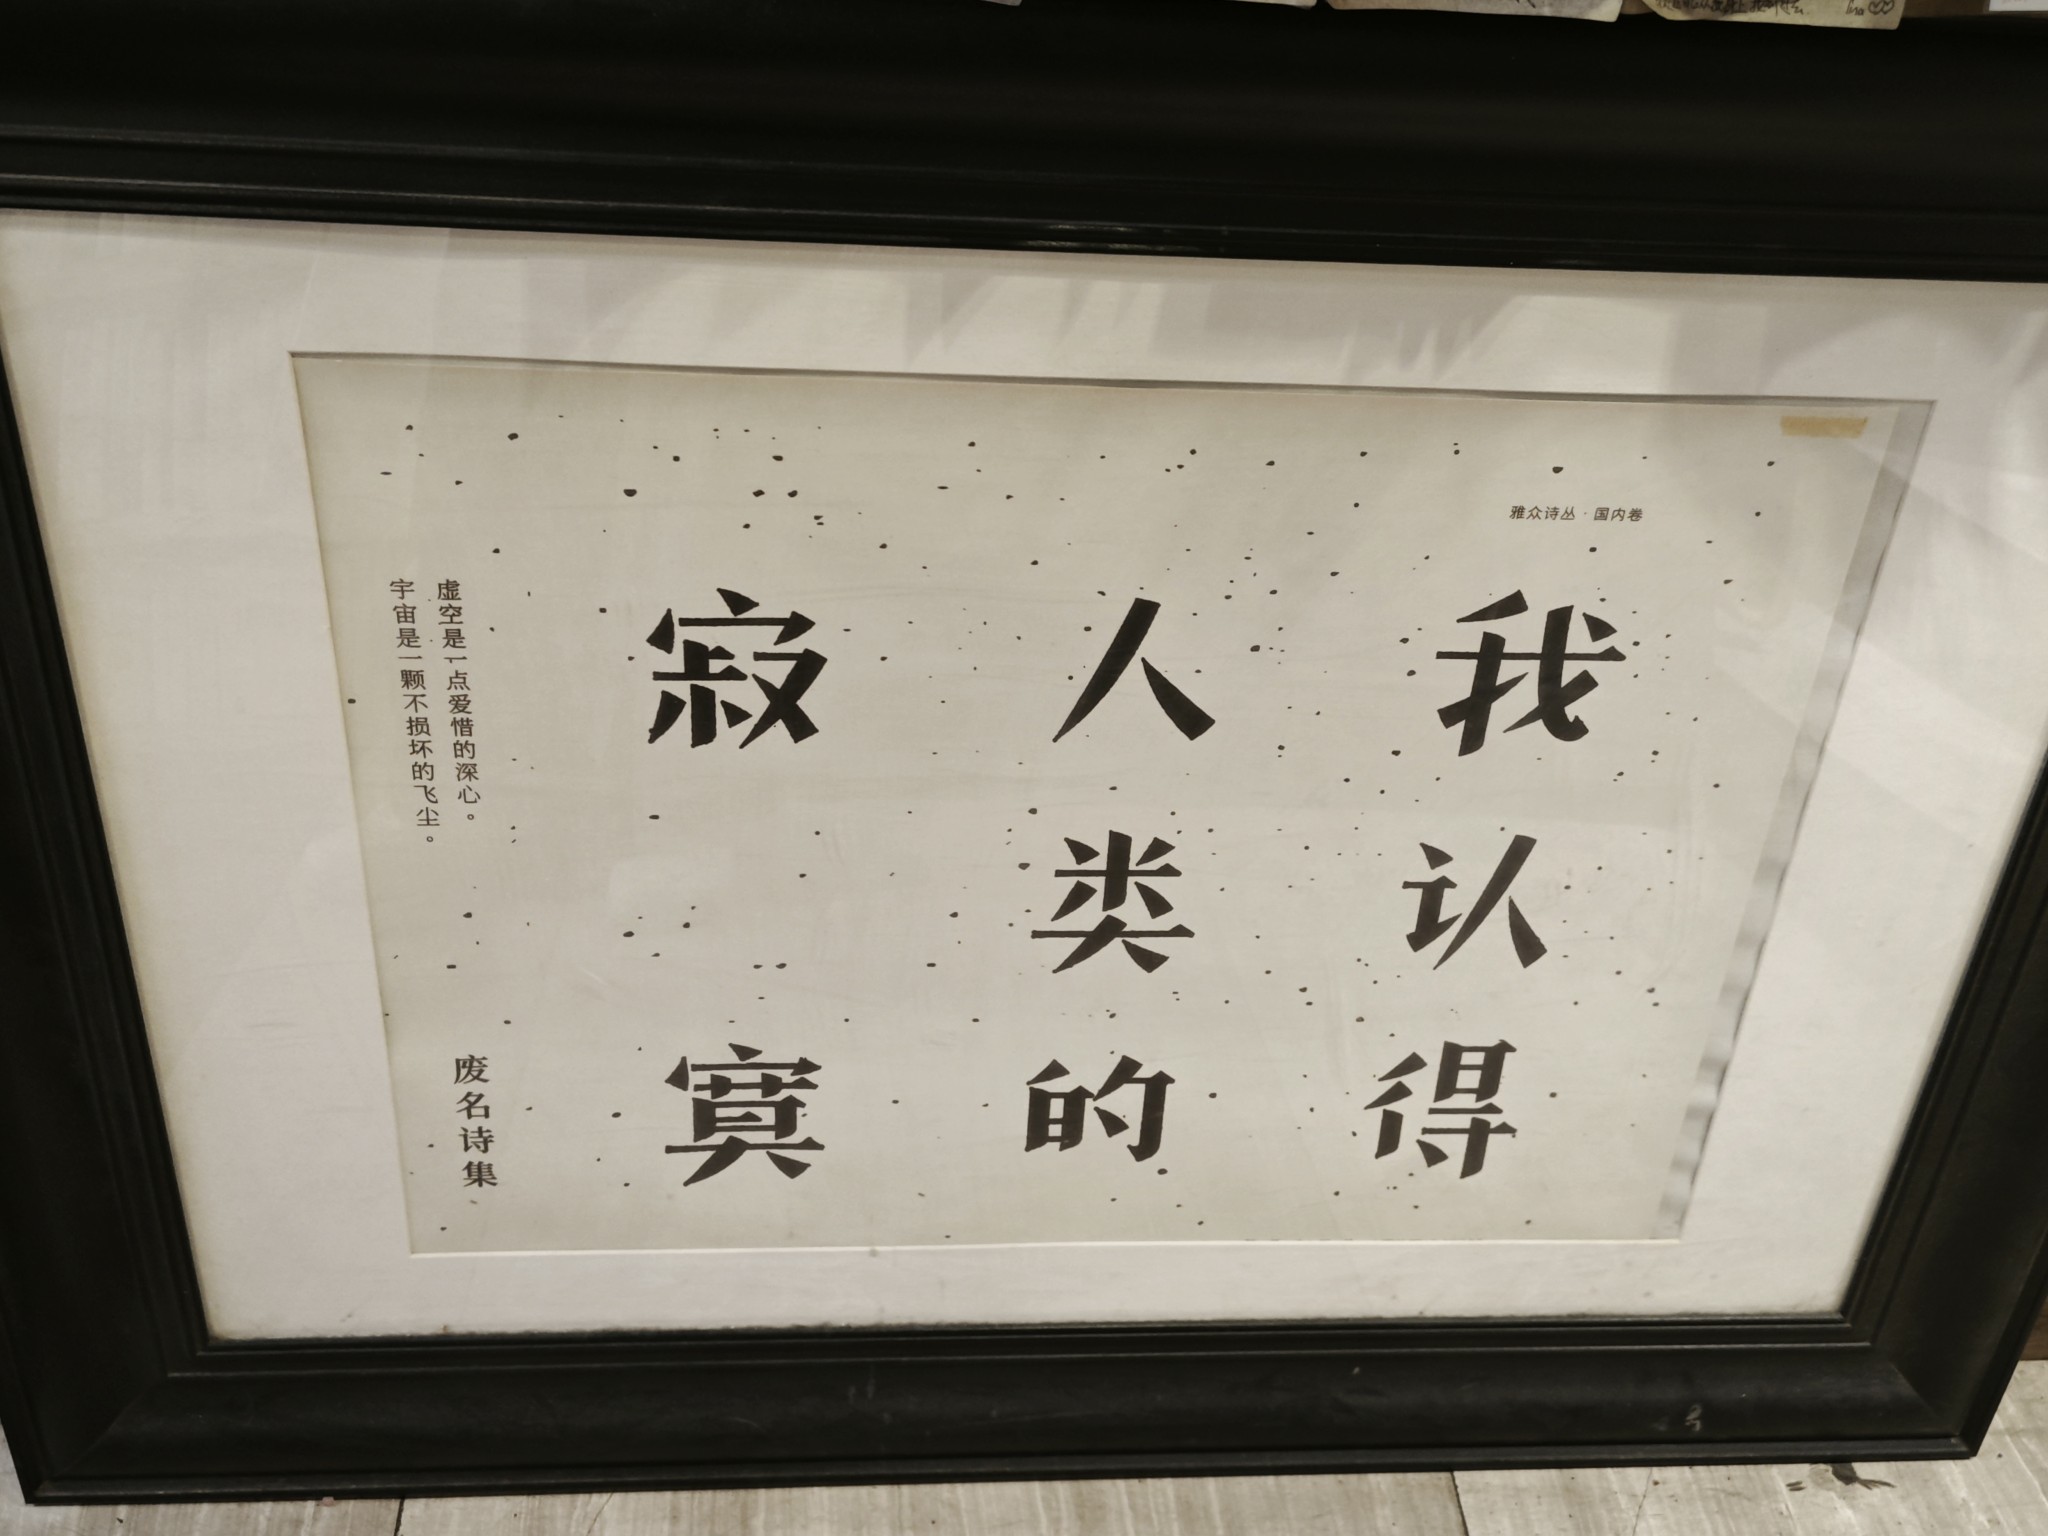 雅众诗丛·国内卷
我认得
人类的
寂寞
虚空是一点爱惜的深心。
宇宙是一颗不损坏的飞尘。
废名诗集